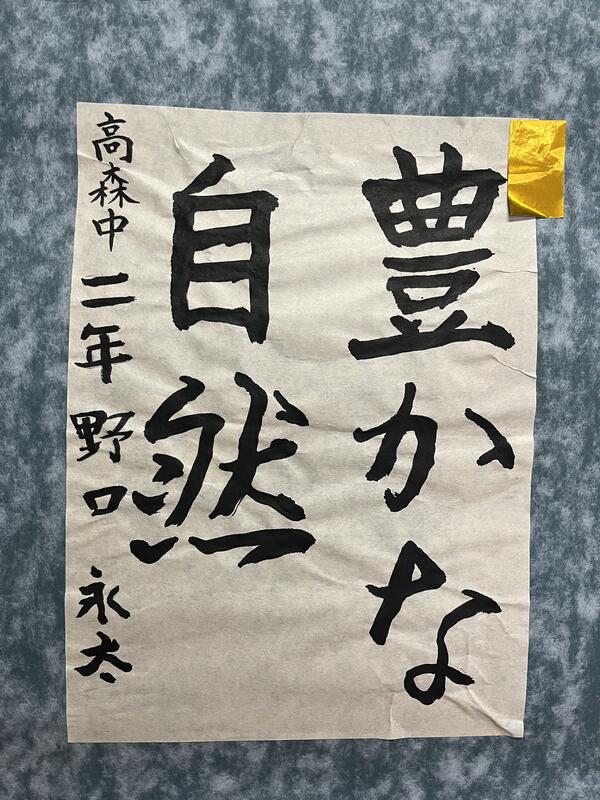 豊かな
自然
高森中 二年 野口 永太